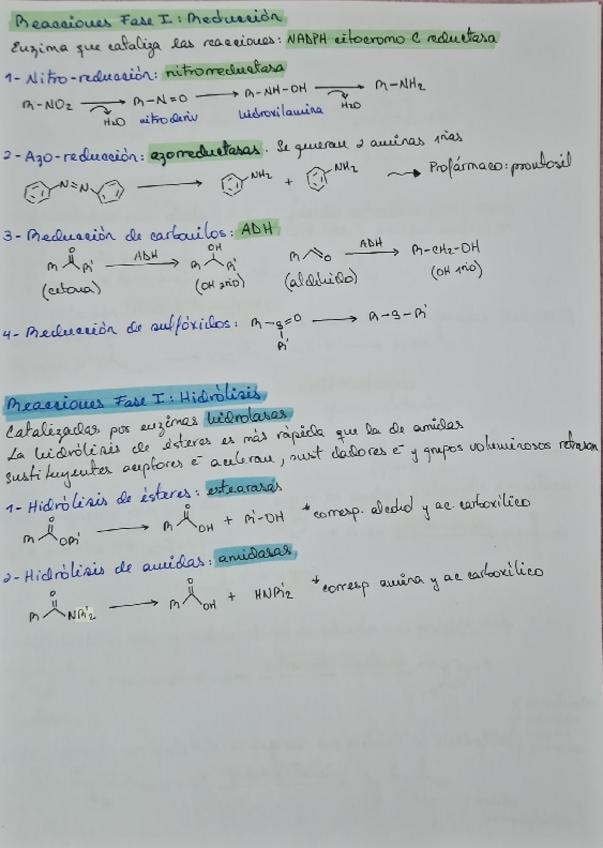 Reacciones Fase I: Reducción
Enzima que cataliza las reacciones: NADPH citocromo C reductasa
1- Nitro-reducción: nitrorreductasa
R-NO2 → R-N=O → R-NH-OH → R-NH2
H2O H2O
nitroderiv hidroxilamina
2- Azo-reducción: azorreductasas. Se generan 2 aminas 1rias
N=N → NH2 + NH2 Profármaco: prontosil
3- Reducción de carbonilos: ADH
O OH
R R' ADH → R R' R O ADH → R-CH2-OH
(cetona) (OH 2rio) (aldehido) (OH 1rio)
4- Reducción de sulfóxidos: R-S=O → R-S-R'
R'
Reacciones Fase I: Hidrólisis
Catalizadas por enzimas hidrolasas
La hidrólisis de ésteres es más rápida que la de amidas
Sustituyentes aceptores e- aceleran, sust dadores e- y grupos voluminosos retrasan
1- Hidrólisis de ésteres: estearasas
O O
R OR' → R OH + R'-OH *corresp. alcohol y ac. carboxílico
2- Hidrólisis de amidas: amidasas
O O
R NR'2 → R OH + HNR'2 *corresp amina y ac carboxílico